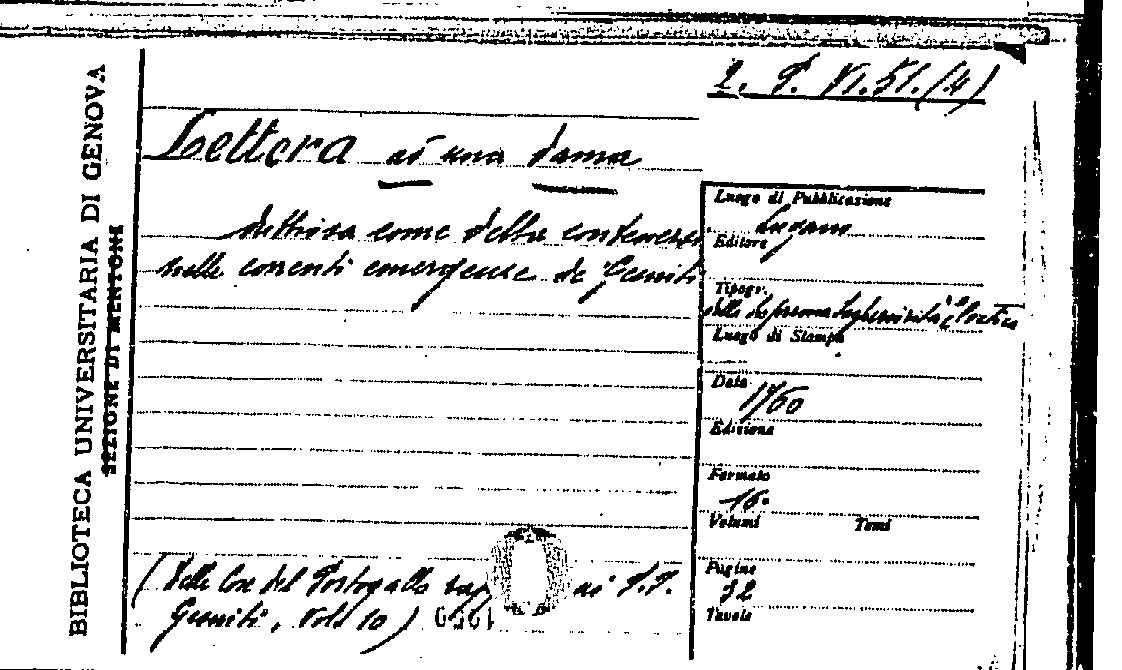 BIBLIOTECA UNIVERSITARIA DI GENOVA
SEZIONE DI MENTONE
2. P. VI.51.(4)
Lettera ad una dama
come della
nelle correnti emergenze de' Gesuiti
Luogo di Pubblicazione
Lugano
Editore
Tipogr.
della Suprema Superiorità Elvetica
Luogo di Stampa
Data
1760
Edizione
Formato
16°
Volumi Tomi
Pagine
32
Tavole
(Delle Cose del Portogallo rap ai P.P.
Gesuiti, Vol. 10)